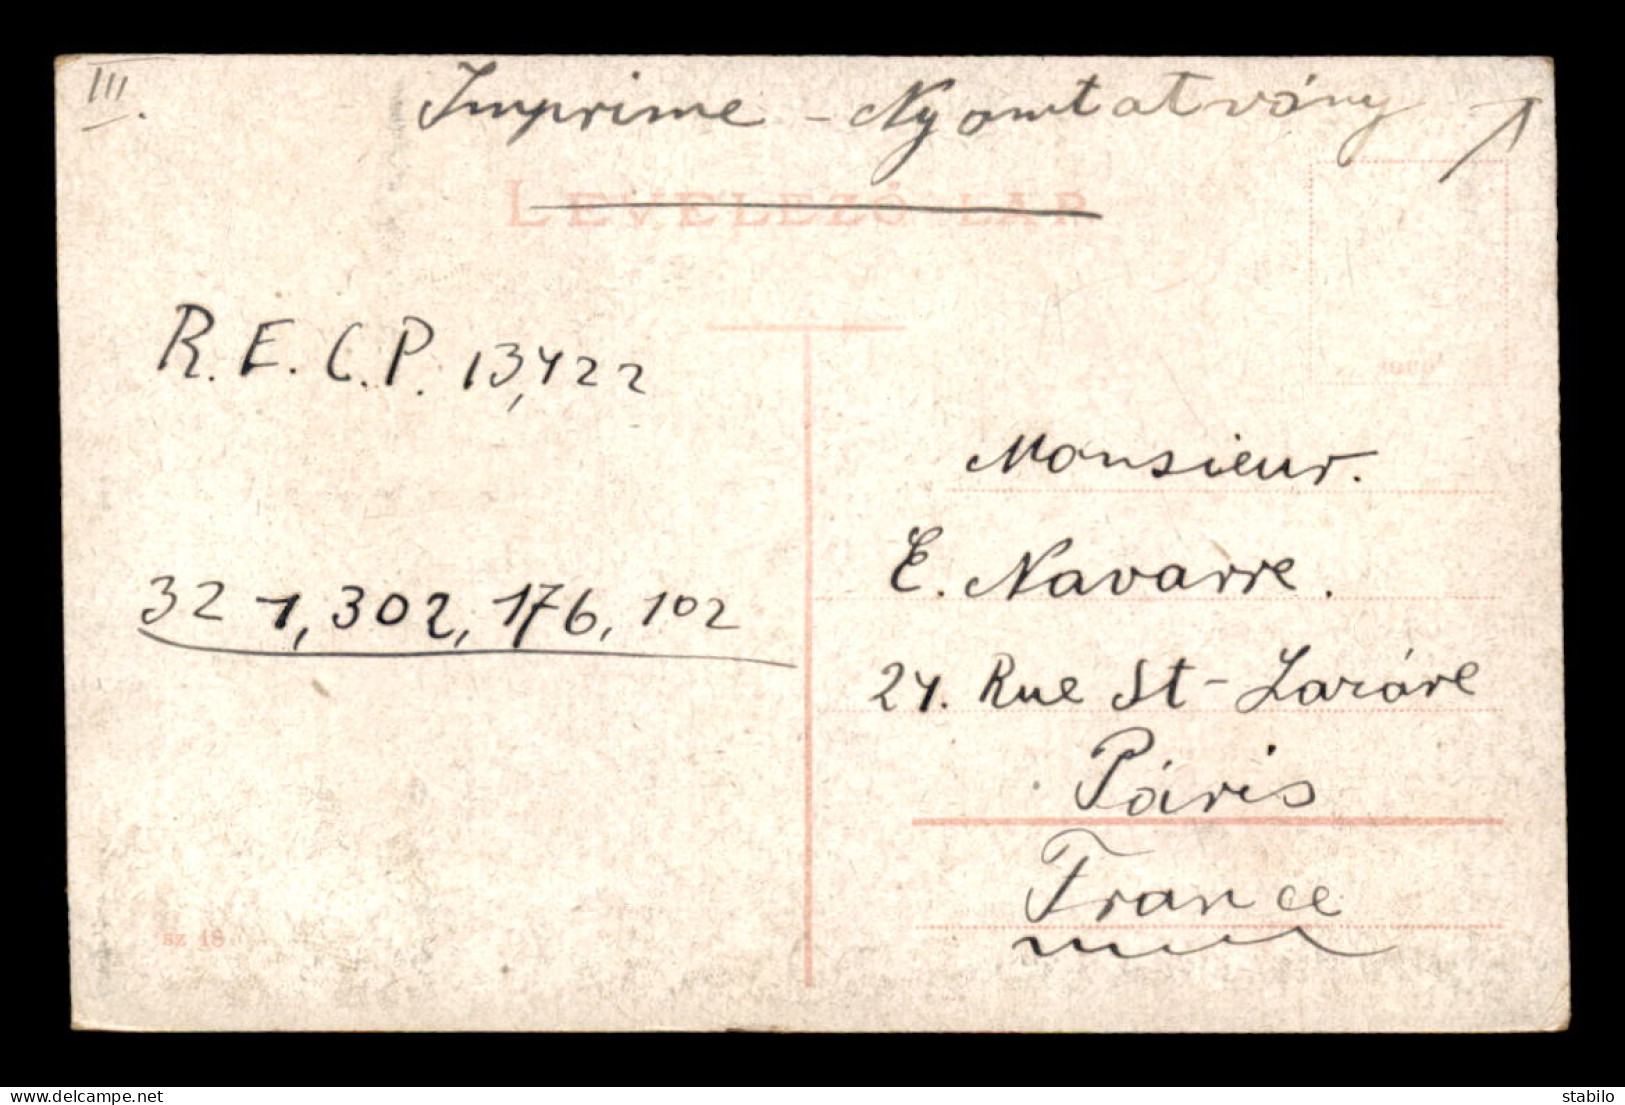 III.
Imprime - Nyomtatvány
LEVELEZŐ-LAP
R.E.C.P. 13,422
321, 302, 176, 102
Monsieur.
E. Navarre.
24. Rue St-Lazáre
Páris
France
sz 18
delcampe.net
stabilo